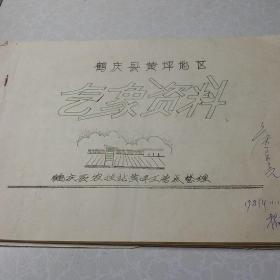 鹤庆县黄坪地区
气象资料
鹤庆县农技站黄坪工作点整理